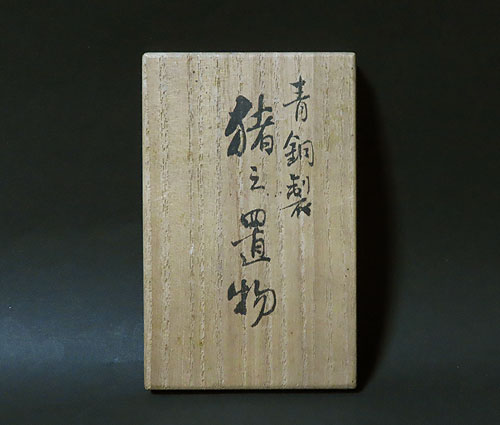 青銅製
猪之置物